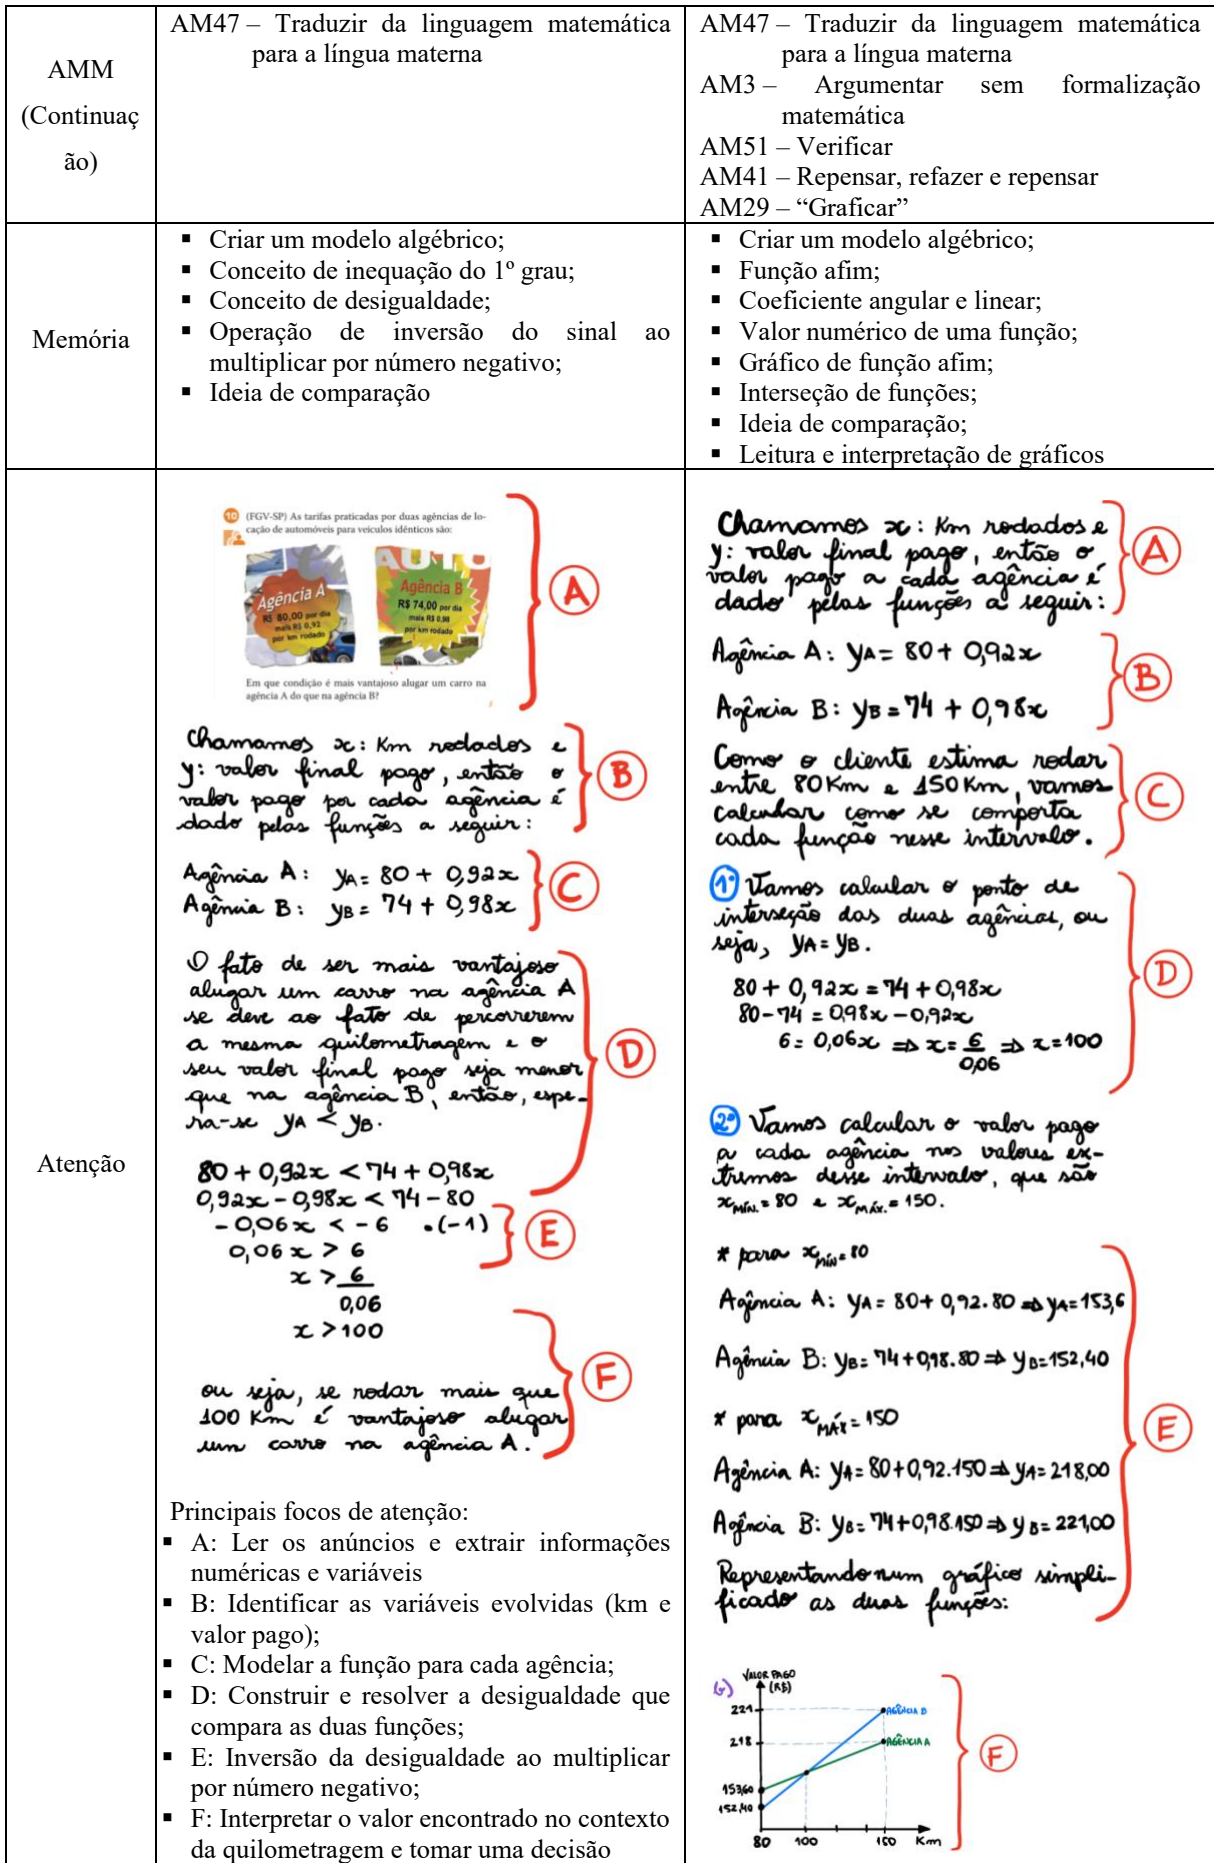 AMM
(Continuaç
ão)
AM47 – Traduzir da linguagem matemática
para a língua materna
AM47 – Traduzir da linguagem matemática
para a língua materna
AM3 – Argumentar sem formalização
matemática
AM51 – Verificar
AM41 – Repensar, refazer e repensar
AM29 – “Graficar”
Memória
▪ Criar um modelo algébrico;
▪ Conceito de inequação do 1º grau;
▪ Conceito de desigualdade;
▪ Operação de inversão do sinal ao
multiplicar por número negativo;
▪ Ideia de comparação
▪ Criar um modelo algébrico;
▪ Função afim;
▪ Coeficiente angular e linear;
▪ Valor numérico de uma função;
▪ Gráfico de função afim;
▪ Interseção de funções;
▪ Ideia de comparação;
▪ Leitura e interpretação de gráficos
Atenção
10 (FGV-SP) As tarifas praticadas por duas agências de lo-
cação de automóveis para veículos idênticos são:
Agência A
R$ 80,00 por dia
mais R$ 0,92
por km rodado
AUTO
Agência B
R$ 74,00 por dia
mais R$ 0,98
por km rodado
Em que condição é mais vantajoso alugar um carro na
agência A do que na agência B?
A
Chamamos x: Km rodados e
y: valor final pago, então o
valor pago por cada agência é
dado pelas funções a seguir:
B
Agência A: yA = 80 + 0,92x
Agência B: yB = 74 + 0,98x
C
O fato de ser mais vantajoso
alugar um carro na agência A
se deve ao fato de percorrerem
a mesma quilometragem e o
seu valor final pago seja menor
que na agência B, então, espe-
ra-se yA < yB.
80 + 0,92x < 74 + 0,98x
0,92x - 0,98x < 74 - 80
D
- 0,06x < - 6 .(-1)
0,06x > 6
E
x > 6
0,06
x > 100
ou seja, se rodar mais que
100 Km é vantajoso alugar
um carro na agência A.
F
Principais focos de atenção:
▪ A: Ler os anúncios e extrair informações
numéricas e variáveis
▪ B: Identificar as variáveis evolvidas (km e
valor pago);
▪ C: Modelar a função para cada agência;
▪ D: Construir e resolver a desigualdade que
compara as duas funções;
▪ E: Inversão da desigualdade ao multiplicar
por número negativo;
▪ F: Interpretar o valor encontrado no contexto
da quilometragem e tomar uma decisão
Chamamos x: Km rodados e
y: valor final pago, então o
valor pago a cada agência é
dado pelas funções a seguir:
A
Agência A: yA = 80 + 0,92x
Agência B: yB = 74 + 0,98x
B
Como o cliente estima rodar
entre 80Km e 150Km, vamos
calcular como se comporta
cada função nesse intervalo.
C
1º Vamos calcular o ponto de
interseção das duas agências, ou
seja, yA = yB.
80 + 0,92x = 74 + 0,98x
80-74 = 0,98x - 0,92x
6 = 0,06x ⇒ x = 6 ⇒ x = 100
0,06
D
2º Vamos calcular o valor pago
a cada agência nos valores ex-
tremos desse intervalo, que são
xMÍN. = 80 e xMÁX. = 150.
* para xMÍN = 80
Agência A: yA = 80 + 0,92.80 ⇒ yA = 153,6
Agência B: yB = 74 + 0,98.80 ⇒ yB = 152,40
* para xMÁX = 150
Agência A: yA = 80 + 0,92.150 ⇒ yA = 218,00
Agência B: yB = 74 + 0,98.150 ⇒ yB = 221,00
Representando num gráfico simpli-
ficado as duas funções:
E
VALOR PAGO
(R$)
221
AGÊNCIA B
218
AGÊNCIA A
153,60
152,40
80 100 150 Km
F